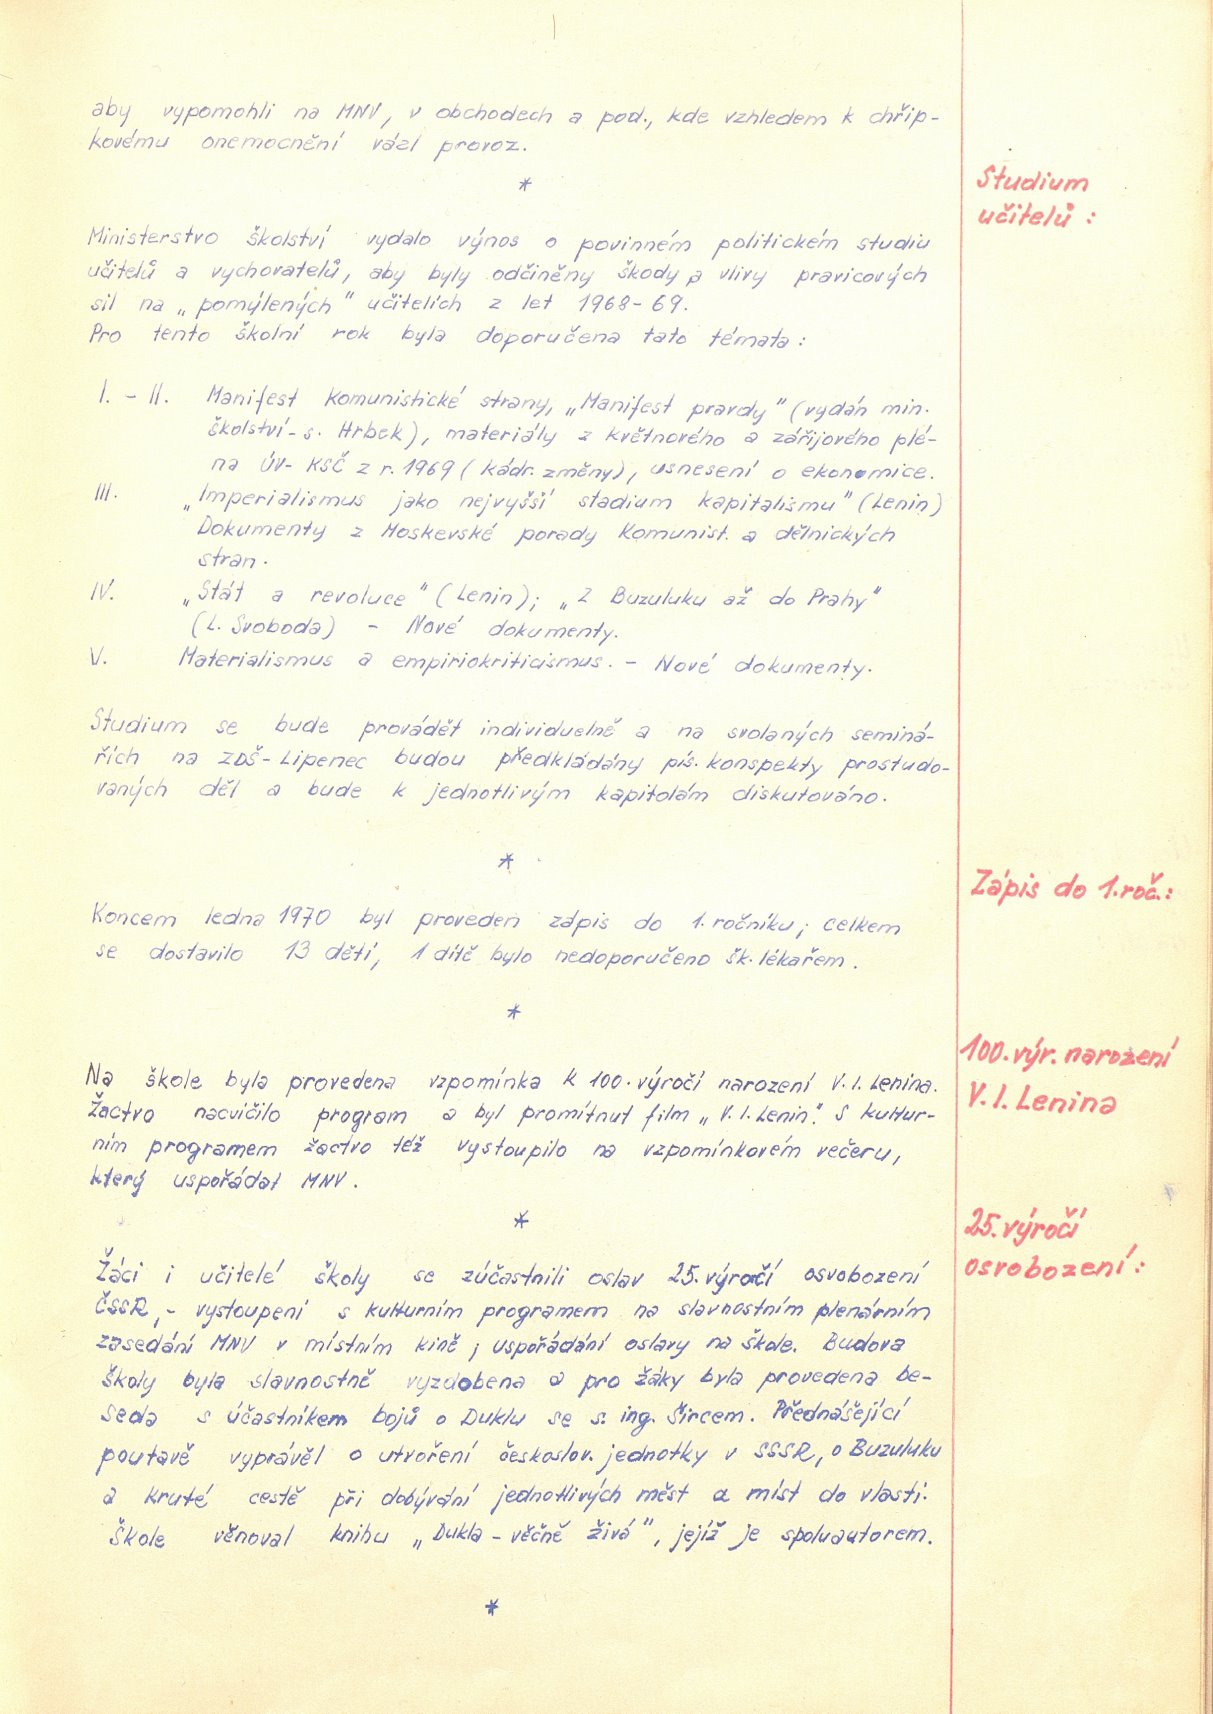 aby vypomohli na MNV, v obchodech a pod., kde vzhledem k chřip-
kovému onemocnění vázl provoz.
*
Studium
učitelů :
Ministerstvo školství vydalo výnos o povinném politickém studiu
učitelů a vychovatelů, aby byly odčiněny škody a vlivy pravicových
sil na „pomýlených" učitelích z let 1968-69.
Pro tento školní rok byla doporučena tato témata :
I. - II. Manifest Komunistické strany, „Manifest pravdy" (vydán min.
školství - s. Hrbek), materiály z květnového a zářijového plé-
na ÚV- KSČ z r. 1969 ( kádr. změny), usnesení o ekonomice.
III. „Imperialismus jako nejvyšší stadium kapitalismu" (Lenin)
Dokumenty z Moskevské porady Komunist. a dělnických
stran.
IV. „Stát a revoluce" (Lenin); „Z Buzuluku až do Prahy"
(L. Svoboda) - Nové dokumenty.
V. Materialismus a empiriokriticismus. - Nové dokumenty.
Studium se bude provádět individuelně a na svolaných seminá-
řích na ZDŠ - Lipenec budou předkládány pís. konspekty prostudo-
vaných děl a bude k jednotlivým kapitolám diskutováno.
*
Zápis do 1. roč.:
Koncem ledna 1970 byl proveden zápis do 1. ročníku; celkem
se dostavilo 13 dětí, 1 dítě bylo nedoporučeno šk. lékařem.
*
100. výr. narození
V. I. Lenina
Na škole byla provedena vzpomínka k 100. výročí narození V. I. Lenina.
Žactvo nacvičilo program a byl promítnut film „V. I. Lenin". S kultur-
ním programem žactvo též vystoupilo na vzpomínkovém večeru,
který uspořádal MNV.
*
25. výročí
osvobození :
Žáci i učitelé školy se zúčastnili oslav 25. výročí osvobození
ČSSR, - vystoupení s kulturním programem na slavnostním plenárním
zasedání MNV v místním kině ; uspořádání oslavy na škole. Budova
školy byla slavnostně vyzdobena a pro žáky byla provedena be-
seda s účastníkem bojů o Duklu se s. ing. Šircem. Přednášející
poutavě vyprávěl o utvoření českoslov. jednotky v SSSR, o Buzuluku
a kruté cestě při dobývání jednotlivých měst a míst do vlasti.
Škole věnoval knihu „Dukla - věčně živá", jejíž je spoluautorem.
*